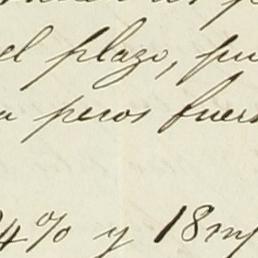 el plazo, pu
a pesos fuer
4% y 18 m